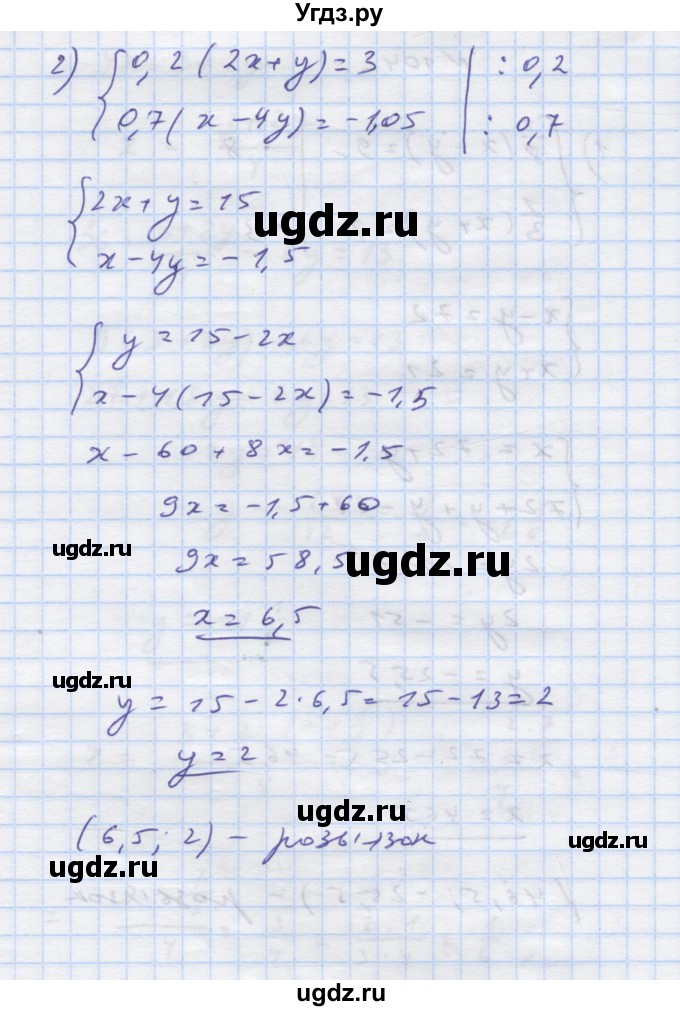 Угдз.ру
2) { 0,2(2x+y)=3 | : 0,2
0,7(x-4y)=-1,05 | : 0,7
{ 2x+y=15
x-4y=-1,5
ugdz.ru
{ y=15-2x
x-4(15-2x)=-1,5
x-60+8x=-1,5
9x=-1,5+60
ugdz.ru
9x=58,5
ugdz.ru
x=6,5
ugdz.ru
y=15-2·6,5=15-13=2
y=2
ugdz.ru
(6,5; 2) - розв'язок
ugdz.ru
ugdz.ru
ugdz.ru